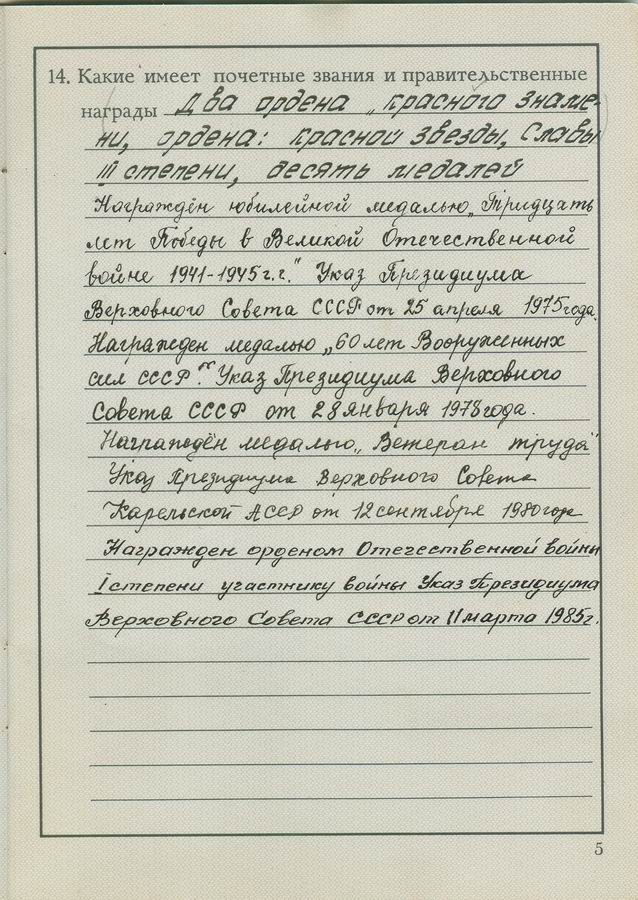 14. Какие имеет почетные звания и правительственные
награды Два ордена „Красного Знаме-
ни, ордена: Красной Звезды, Славы
III степени, десять медалей
Награждён юбилейной медалью „Тридцать
лет Победы в Великой Отечественной
войне 1941-1945 г.г." Указ Президиума
Верховного Совета СССР от 25 апреля 1975 года.
Награжден медалью „60 лет Вооруженных
сил СССР." Указ Президиума Верховного
Совета СССР от 28 января 1978 года.
Награждён медалью „Ветеран труда"
Указ Президиума Верховного Совета
Карельской АССР от 12 сентября 1980 года
Награжден орденом Отечественной войны
I степени участнику войны Указ Президиума
Верховного Совета СССР от 11 марта 1985 г.
5